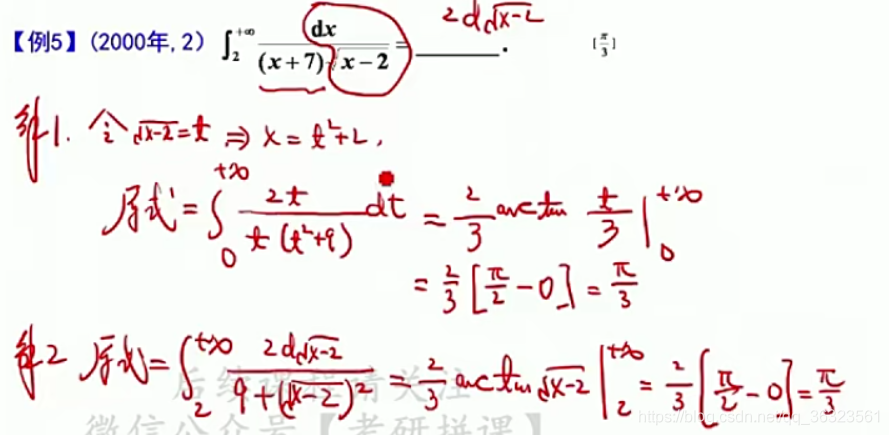 2d√(x-2)
【例5】(2000年, 2) ∫₂^{+∞} dx / ((x+7)√(x-2)) = ______. [π/3]
解1. 令√(x-2)=t ⇒ x=t²+2,
原式=∫₀^{+∞} 2t / (t(t²+9)) dt = 2/3 arctan t/3 |₀^{+∞}
= 2/3 [π/2 - 0] = π/3
解2 原式=∫₂^{+∞} 2d√(x-2) / (9+(√(x-2))²) = 2/3 arctan √(x-2) |₂^{+∞} = 2/3 [π/2 - 0] = π/3
后续课程请关注
微信公众号【考研拼课】
https://blog.csdn.net/qq_36323561